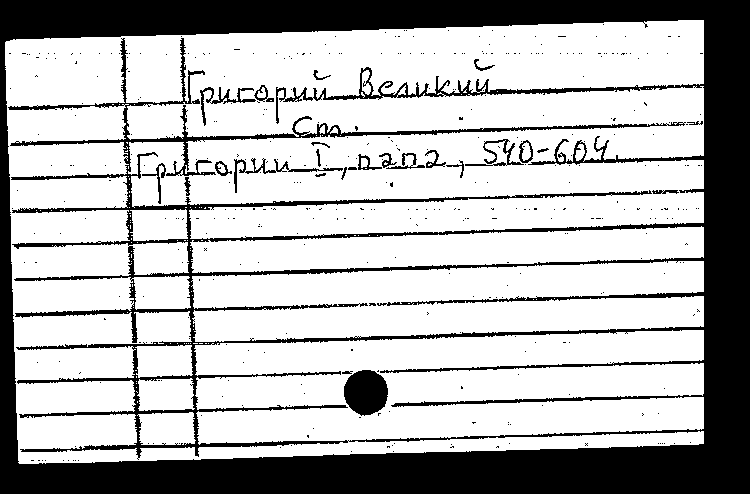 Григорий Великий
Cm.
Григории I, папа, 540-604.